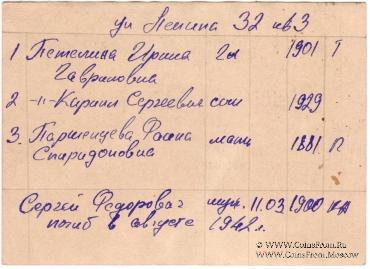 ул Ленина 32 кв 3
1 Петелина Ирина гл 1901 Т
Гавриловна
2 -„- Кирилл Сергеевич сын 1929
3. Паршенцева Фаина мать 1881 П
Спиридоновна
Сергей Федорович муж. 11.03.1900
погиб в августе 1942 г.
© www.CoinsFrom.Ru
© CoinsFrom.Moscow